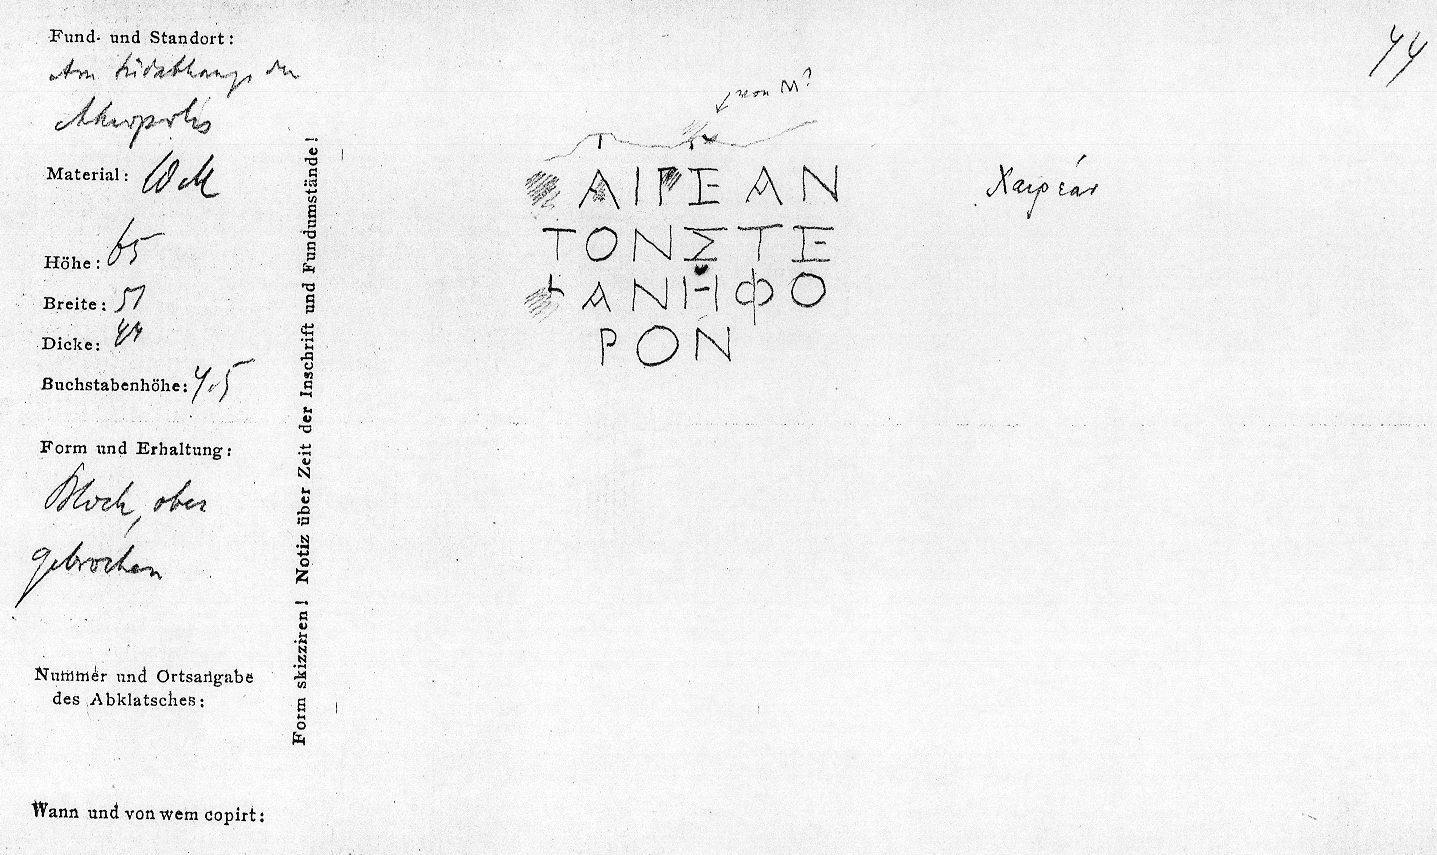 Fund- und Standort:
Am Südabhange der
Akropolis
Material: W M
Höhe: 65
Breite: 51
Dicke: 44
Buchstabenhöhe: 4,5
Form und Erhaltung:
Block, oben
gebrochen
Nummer und Ortsangabe
des Abklatsches:
Wann und von wem copirt:
Form skizziren! Notiz über Zeit der Inschrift und Fundumstände!
von M?
ΑΙΡΕΑΝ
ΤΟΝΣΤΕ
ΑΝΗΦΟ
ΡΟΝ
Χαιρέαν
44